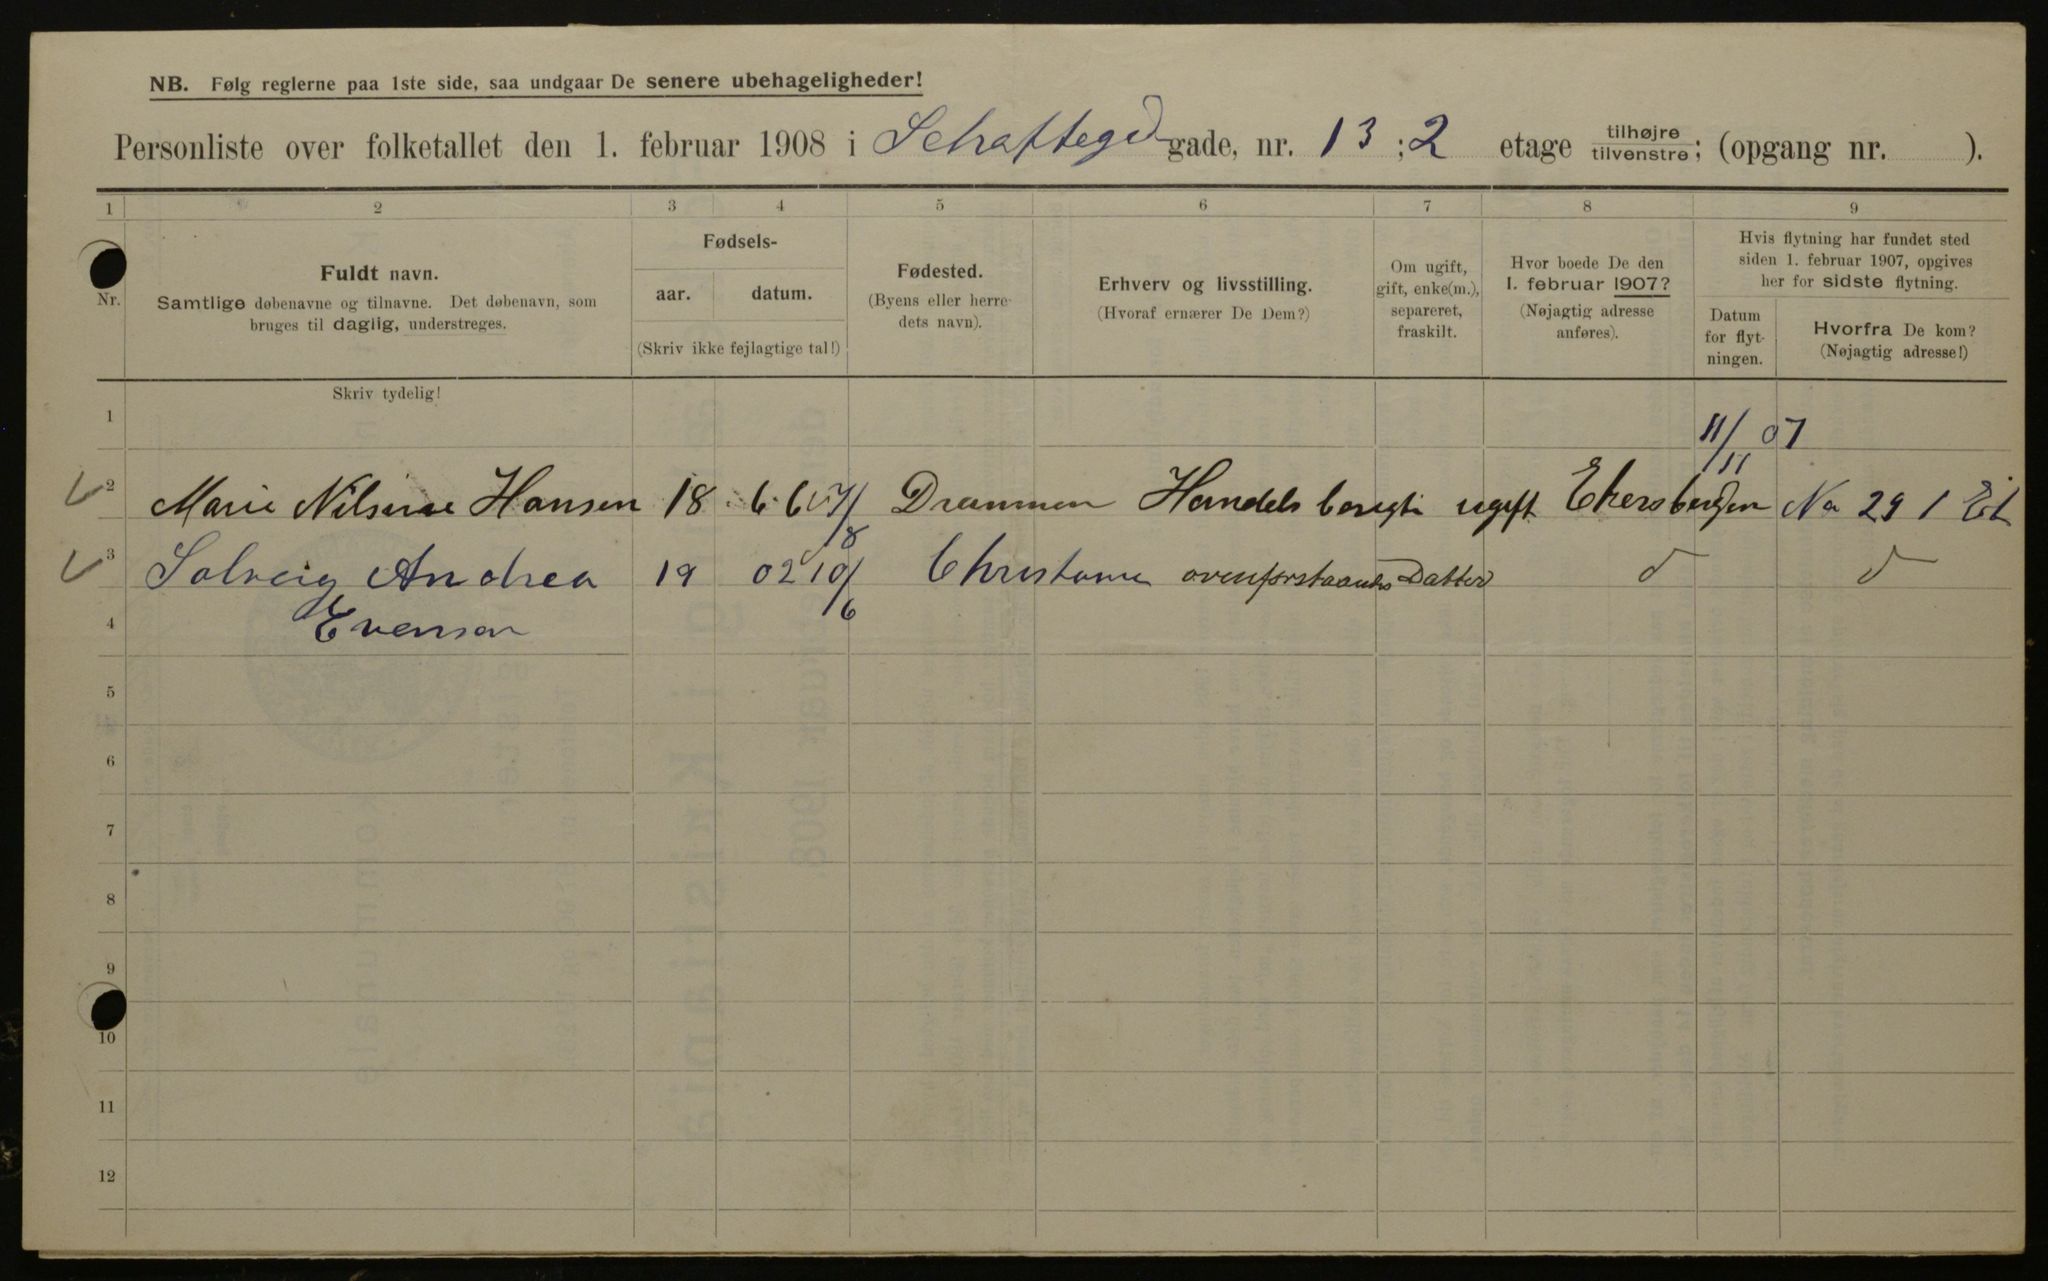 NB. Følg reglerne paa 1ste side, saa undgaar De senere ubehageligheder!
Personliste over folketallet den 1. februar 1908 i Schaftegd gade, nr. 13 ; 2 etage tilhøjre tilvenstre; (opgang nr. ).
1 2 3 4 5 6 7 8 9
Nr.
Fuldt navn.
Samtlige døbenavne og tilnavne. Det døbenavn, som
bruges til daglig, understreges.
Fødsels-
aar. datum.
(Skriv ikke fejlagtige tal!)
Fødested.
(Byens eller herre-
dets navn).
Erhverv og livsstilling.
(Hvoraf ernærer De Dem?)
Om ugift,
gift, enke(m.),
separeret,
fraskilt.
Hvor boede De den
1. februar 1907?
(Nøjagtig adresse
anføres).
Hvis flytning har fundet sted
siden 1. februar 1907, opgives
her for sidste flytning.
Datum
for flyt-
ningen.
Hvorfra De kom?
(Nøjagtig adresse!)
Skriv tydelig!
1 11/11 07
2 Marie Nilsine Hansen 18 66 Drammen Handels ugift No 29 1 Et
3 Solveig Andrea 19 02 10/6 Christania ovenforstaaendes Datter d d
4 Evensen
5
6
7
8
9
10
11
12